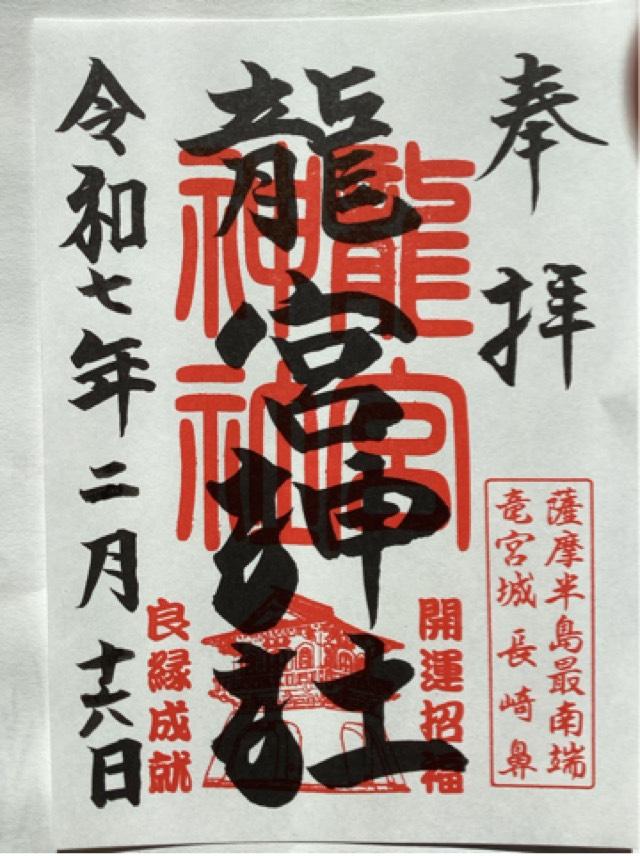 奉拝
薩摩半島最南端
竜宮城 長崎鼻
龍宮神社
龍宮
神社
開運招福
良縁成就
令和七年二月十六日